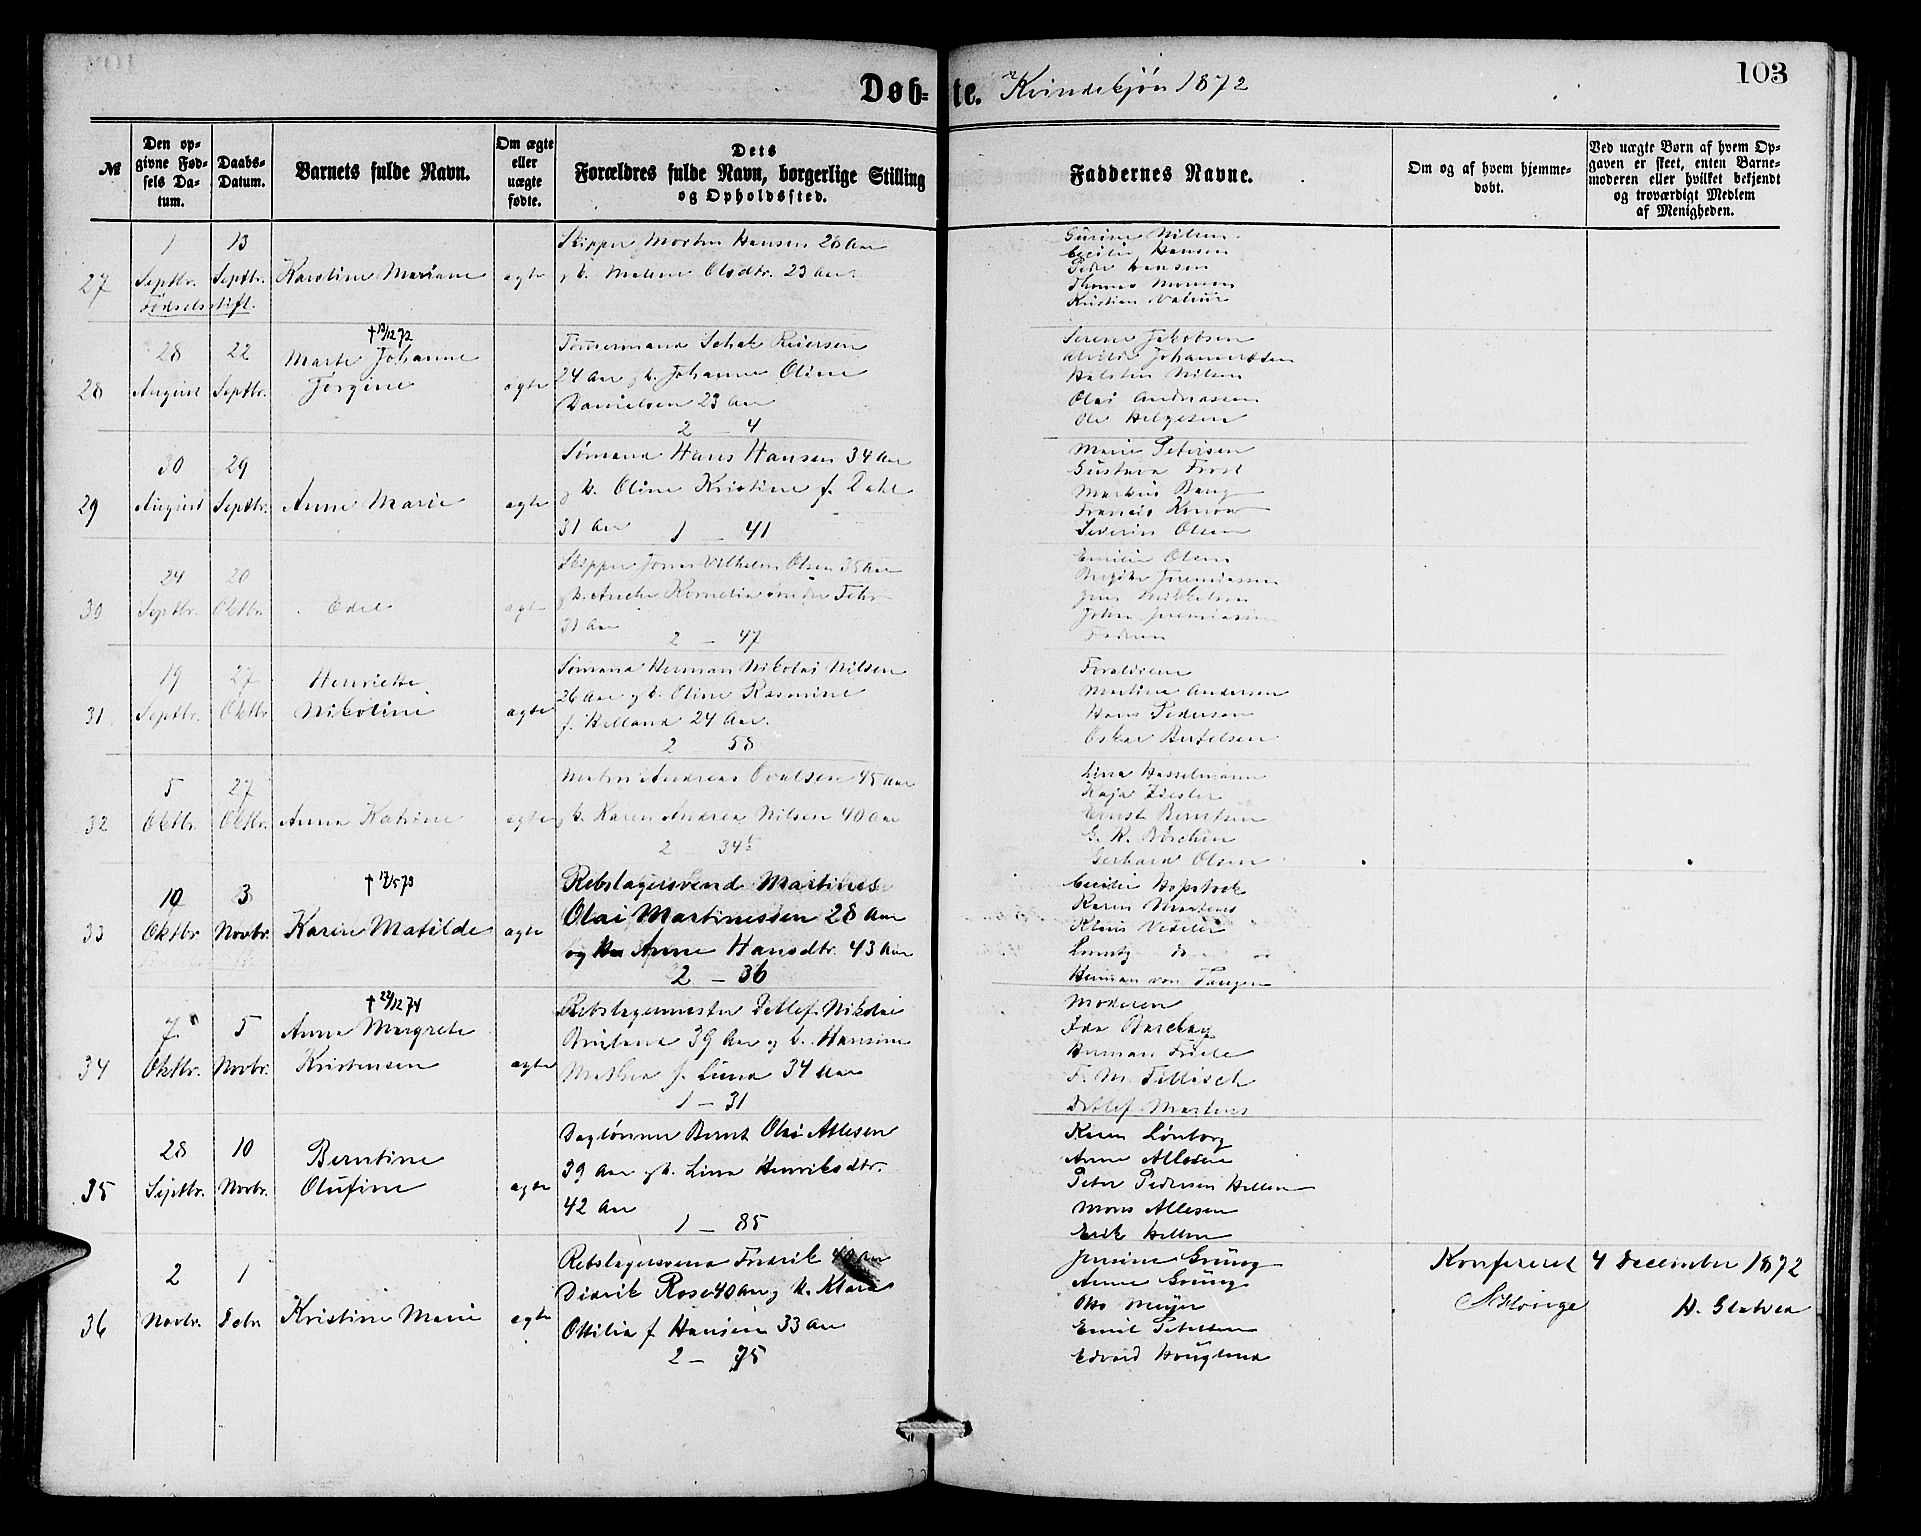 Døb-te. Kvindekjön 1872
103
№
Den op-
givne Fød-
sels Da-
tum.
Daabs-
Datum.
Barnets fulde Navn.
Om ægte
eller
uægte
fødte.
Dets
Forældres fulde Navn, borgerlige Stilling
og Opholdssted.
Faddernes Navne.
Om og af hvem hjemme-
døbt.
Ved uægte Børn af hvem Op-
gaven er skeet, enten Barne-
moderen eller hvilket bekjendt
og troværdigt Medlem
af Menigheden.
27
1
Septbr.
Fødselsstift.
13
Septbr.
Karoline Mariane
ægte
Skipper Morten Hansen 28 Aar
Malene Olsdtr. 23 Aar.
Nilsen
Cecilie Hansen
Peder Hansen
Thomas Monsen
Kristian
28
28
August
22
Septbr.
† 13/12 72
Marte Johanne
Jørgine
ægte
Tømermand Reiersen
24 Aar g k. Johanne Oline
Danielsen 23 Aar
2 4
Serene Jakobsen
Johannesen
Halsten Nilsen
Olai Andreassen
Ole Helgesen
29
30
August
29
Septbr.
Anne Marie
ægte
Sømand Hans Hansen 34 Aar
g k. Oline Kristine f. Dahl
31 Aar 1 — 41
Marie Petersen
Gustava Frost
Markus Bang
Francis
Severin Olsen
30
24
Septbr.
20
Oktbr.
Edel
ægte
Skipper Jonas Vilhelm Olsen 35 Aar
g k. Kornelia
31 Aar
2 — 47
Emilie Olsen
Birgitte Jeremiassen
Jens Mikkelsen
Johan Jeremiassen
Faderen
31
19
Septbr.
27
Oktbr
Henriette
Nikoline
ægte
Sømand Herman Nikolai Nilsen
26 Aar g k. Oline Rasmine
f. Helland 24 Aar.
2 58
Forældrene
Martine Andersen
Hans Pedersen
Oskar Bertelsen
32
5
Oktbr.
27
Oktbr.
Anna Katrine
ægte
Andreas 45 Aar
g k. Karen Andrea Nilsen 40 Aar
2 — 345
Lina Hasselmann
Kaja Ziesler
Ernst Berntsen
G. K. Börchen
Gerhard Olsen
33
19
Oktbr
3
Novbr.
† 17/5 73
Karen Matilde
ægte
Rebslagersvend Martines
Olai Martinessen 28 Aar
og k Anne Hansdtr. 43 Aar
2 — 36
Cecilie Hopstock
Karen Martens
Klaus
Lorentz do
Herman von Tangen
34
7
Oktbr.
5
Novbr.
† 22/12 74
Anna Margrete
Kristensen
ægte
Rebslagermester Detlef Nikolai
39 Aar g k. Hansine
Mathea f. Lund 34 Aar
1 — 31
Moderen
Ida Barclay
Herman Friele
F. M. Fellisch
Detlef Martens
35
28
Septbr.
10
Novbr.
Berntine
Olufine
ægte
Daglønner Bernt Olai Atlesen
39 Aar g k. Lina Henriksdtr.
42 Aar
1 — 85
Karen Lönborg
Anne Atlesen
Peter Pedersen Hellen
Mons Atlesen
Erik Hellen
36
2
Novbr.
1
Debr
Kristine Marie
ægte
Rebslagersvend Fredrik 40 Aar
Didrik Rose 40 Aar g k. Klara
Ottilia f Hansen 33 Aar
2 — 75
Jensine Grung
Anne Grung
Otto Meyer
Emil Petersen
Edvard Hougland
Konfereret 4 December 1872